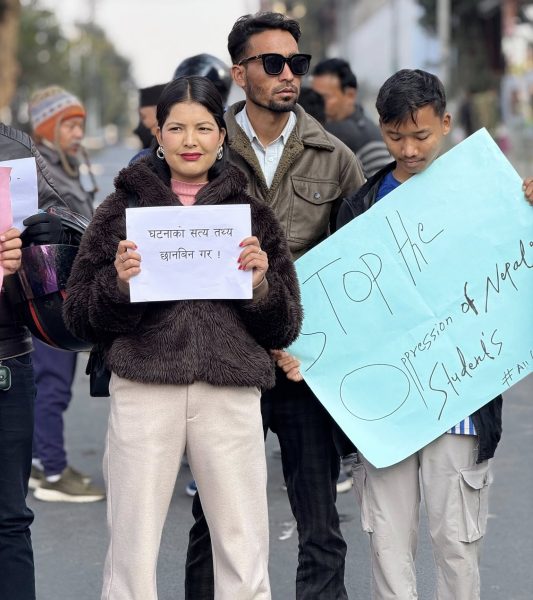 घटनाको सत्य तथ्य
छानबिन गर !
STOP the
Oppression of Nepali
Students